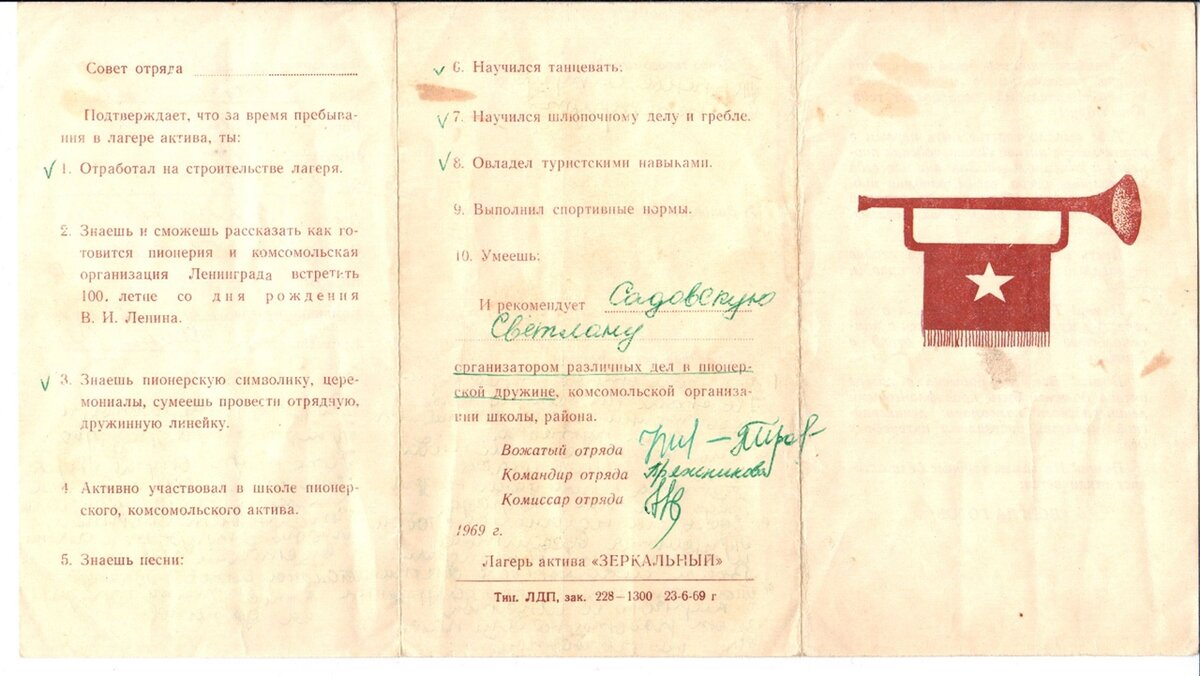 Совет отряда
Подтверждает, что за время пребыва-
ния в лагере актива, ты:
✓ 1. Отработал на строительстве лагеря.
2. Знаешь и сможешь рассказать как го-
товится пионерия и комсомольская
организация Ленинграда встретить
100. летие со дня рождения
В. И. Ленина.
✓ 3. Знаешь пионерскую символику, цере-
мониалы, сумеешь провести отрядную,
дружинную линейку.
4 Активно участвовал в школе пионер-
ского, комсомольского актива.
5. Знаешь песни:
✓ 6. Научился танцевать.
✓ 7. Научился шлюпочному делу и гребле.
✓ 8. Овладел туристскими навыками.
9. Выполнил спортивные нормы.
10. Умеешь:
И рекомендует Садовскую
Светлану
организатором различных дел в пионер-
ской дружине, комсомольской организа-
ции школы, района.
Вожатый отряда
Командир отряда Пряжникова
Комиссар отряда
1969 г.
Лагерь актива «ЗЕРКАЛЬНЫЙ»
Тип. ЛДП, зак. 228—1300 23-6-69 г